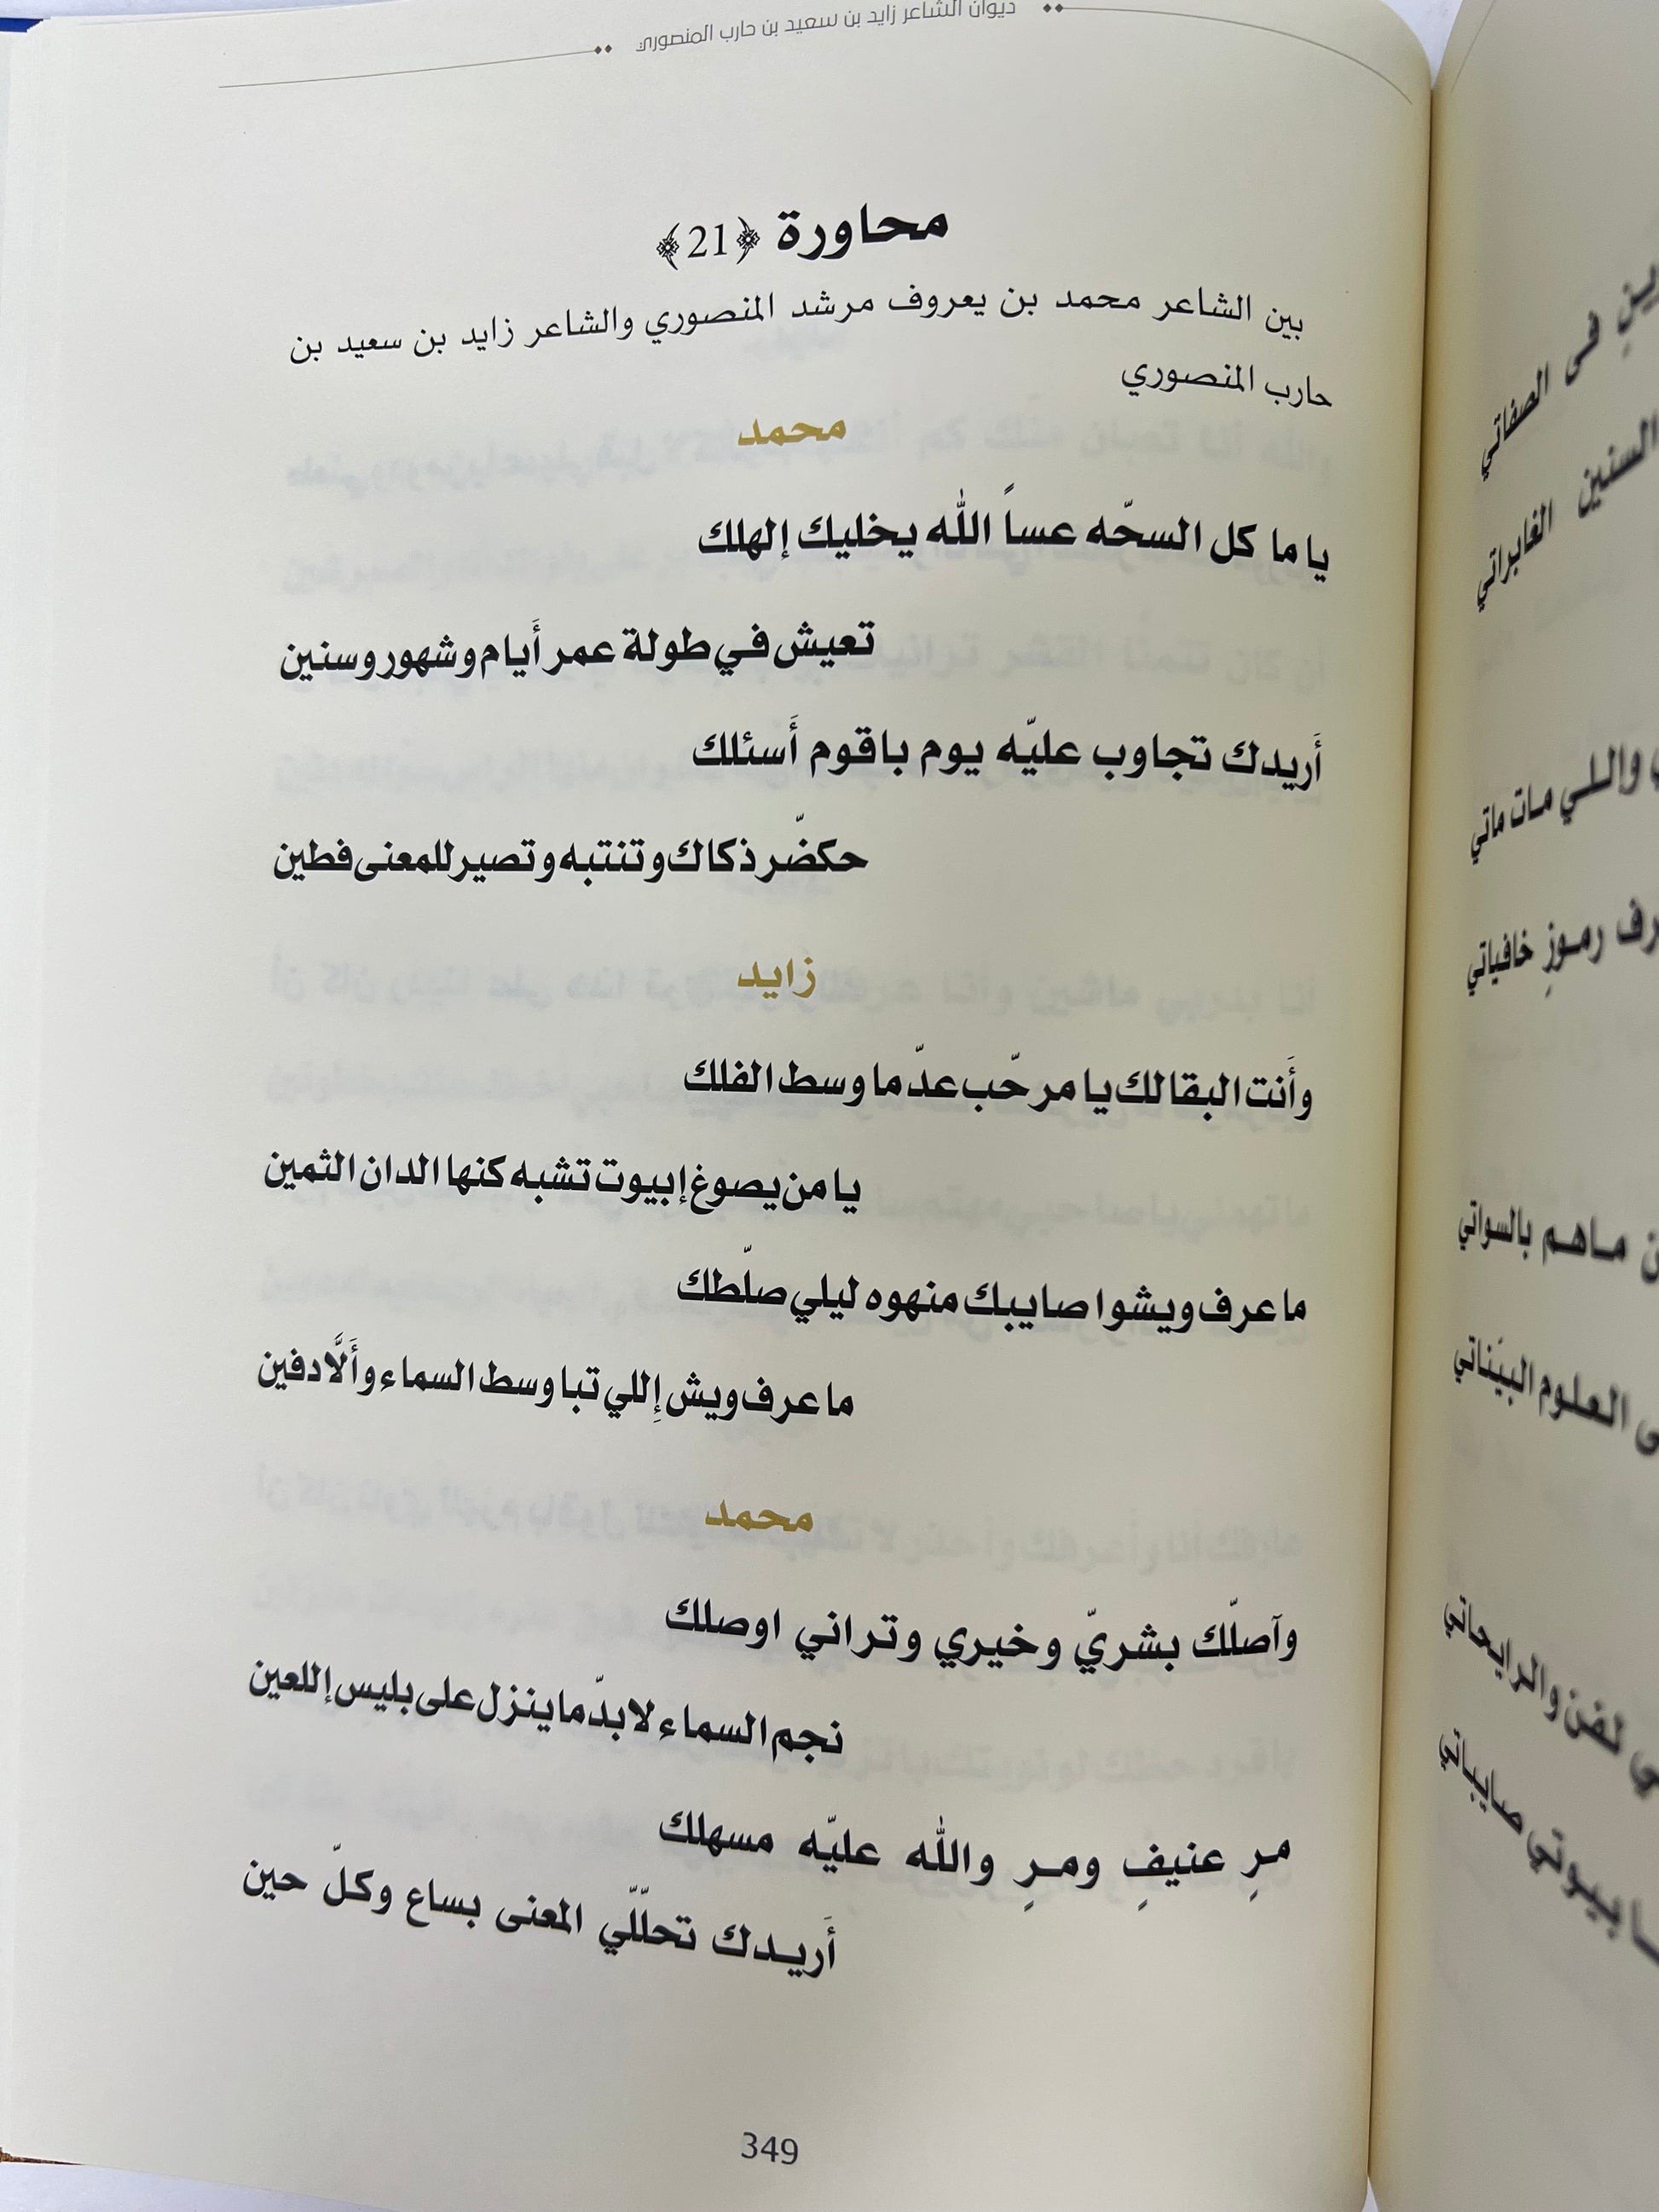 ديوان الشاعر زايد بن سعيد بن حارب المنصوري
محاورة ﴿21﴾
بين الشاعر محمد بن يعروف مرشد المنصوري والشاعر زايد بن سعيد بن
حارب المنصوري
محمد
يا ما كل السحّه عساً الله يخليك إلهلك
تعيش في طولة عمر أَيام وشهور وسنين
أَريدك تجاوب عليّه يوم باقوم أَسئلك
حكضّر ذكاك وتنتبه وتصير للمعنى فطين
زايد
وأَنت البقا لك يا مرحّب عدّ ما وسط الفلك
يا من يصوغ إبيوت تشبه كنها الدان الثمين
ما عرف ويشوا صايبك منهوه ليلي صلّطك
ما عرف ويش إِللي تبا وسط السماء وأَلَّا دفين
محمد
وآصلّك بشريّ وخيري وتراني اوصلك
نجم السماء لابدّ ما ينزل على بليس إللعين
مرِ عنيفِ ومرِ والله عليّه مسهلك
أَريدك تحلّلّي المعنى بساع وكلّ حين
349
في الصفاتي
السنين الغابراتي
واللي مات ماتي
رموزِ خافياتي
ماهم بالسواتي
العلوم البيّناتي
لفن والرايحاتي
بيوتي صايباتي